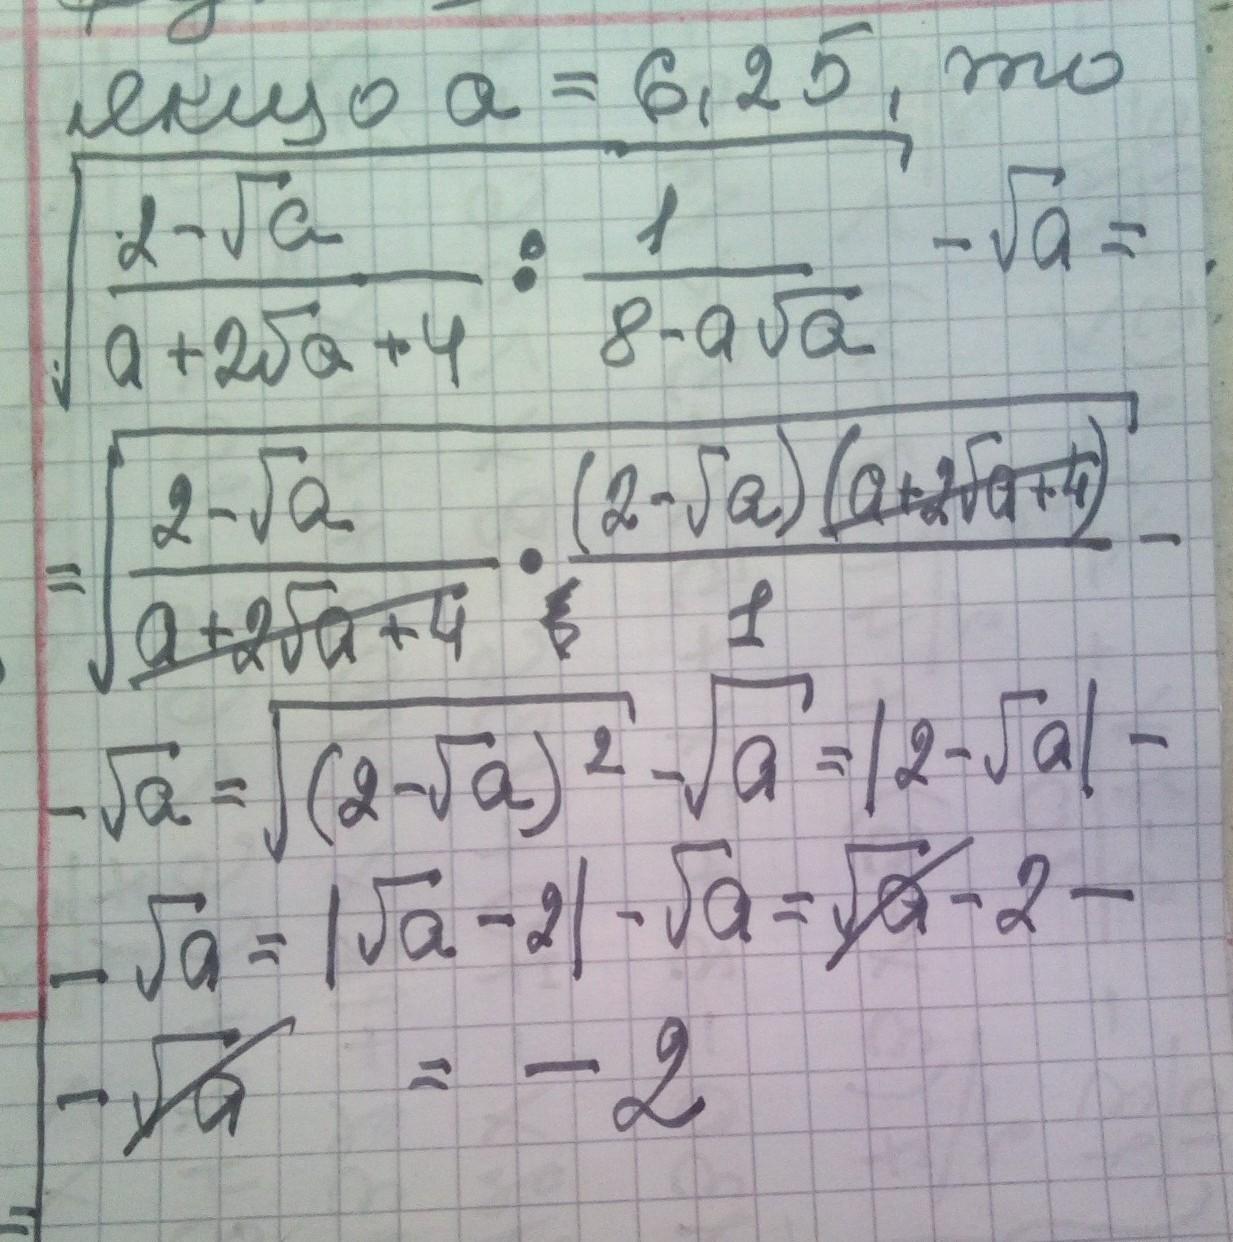 якщо a = 6,25, то
√((2-√a)/(a+2√a+4) : 1/(8-a√a)) -√a =
= √((2-√a)/(a+2√a+4) • (2-√a)(a+2√a+4)/1) -
-√a = √((2-√a)²) -√a = |2-√a| -
- √a = |√a - 2| - √a = √a - 2 -
- √a = - 2